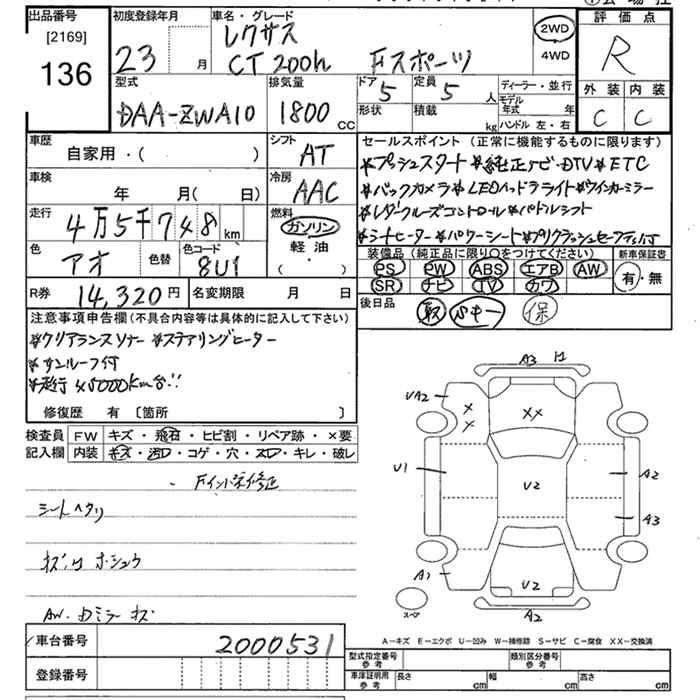 出品番号
[2169]
136
初度登録年月
23
月
車名・グレード
レクサス
CT 200h Fスポーツ
2WD
4WD
評価点
R
外装 内装
C C
型式
DAA-ZWA10
排気量
1800
CC
ドア
5
形状
定員
5
人
積載
kg
ディーラー・並行
モデル
年式 年
ハンドル 左・右
車歴
自家用・( )
シフト
AT
車検
年 月( 日)
冷房
AAC
走行
4万5千748
km
燃料
ガソリン
軽油
( ・ )
色
アオ
色替
色コード
8U1
セールスポイント (正常に機能するものに限ります)
*プッシュスタート *純正ナビ・DTV *ETC
*バックカメラ *LEDヘッドライト *ウインカーミラー
*レダークルーズコントロール *パドルシフト
*シートヒーター *パワーシート *プリクラッシュセーフティ付
装備品(純正品に限り○をつけてください)
PS PW ABS エアB AW
SR ナビ TV カワ
新車保証書
有・無
R券
14,320 円
名変期限 月 日
後日品
取 保
注意事項申告欄(不具合内容等は具体的に記入して下さい)
*クリアランスソナー *ステアリングヒーター
*サンルーフ付
*走行45000km台!!
修復歴 有 〔箇所 〕
検査員
記入欄
FW キズ・飛石・ヒビ割・リペア跡・×要
内装 キズ・汚レ・コゲ・穴・スレ・キレ・破レ
・Fインパ栄修正
シートヘタリ
AW・Dミラーキズ
A3
UA2
××
××
U1
U2
A2
A3
A1
U2
A2
スペア
A-キズ E-エクボ U-凹み W-補修跡 S-サビ C-腐食 XX-交換済
車台番号
2000531
登録番号
型式指定番号
参考
類別区分番号
参考
車庫証明用
参考
長さ cm
幅 cm
高さ cm